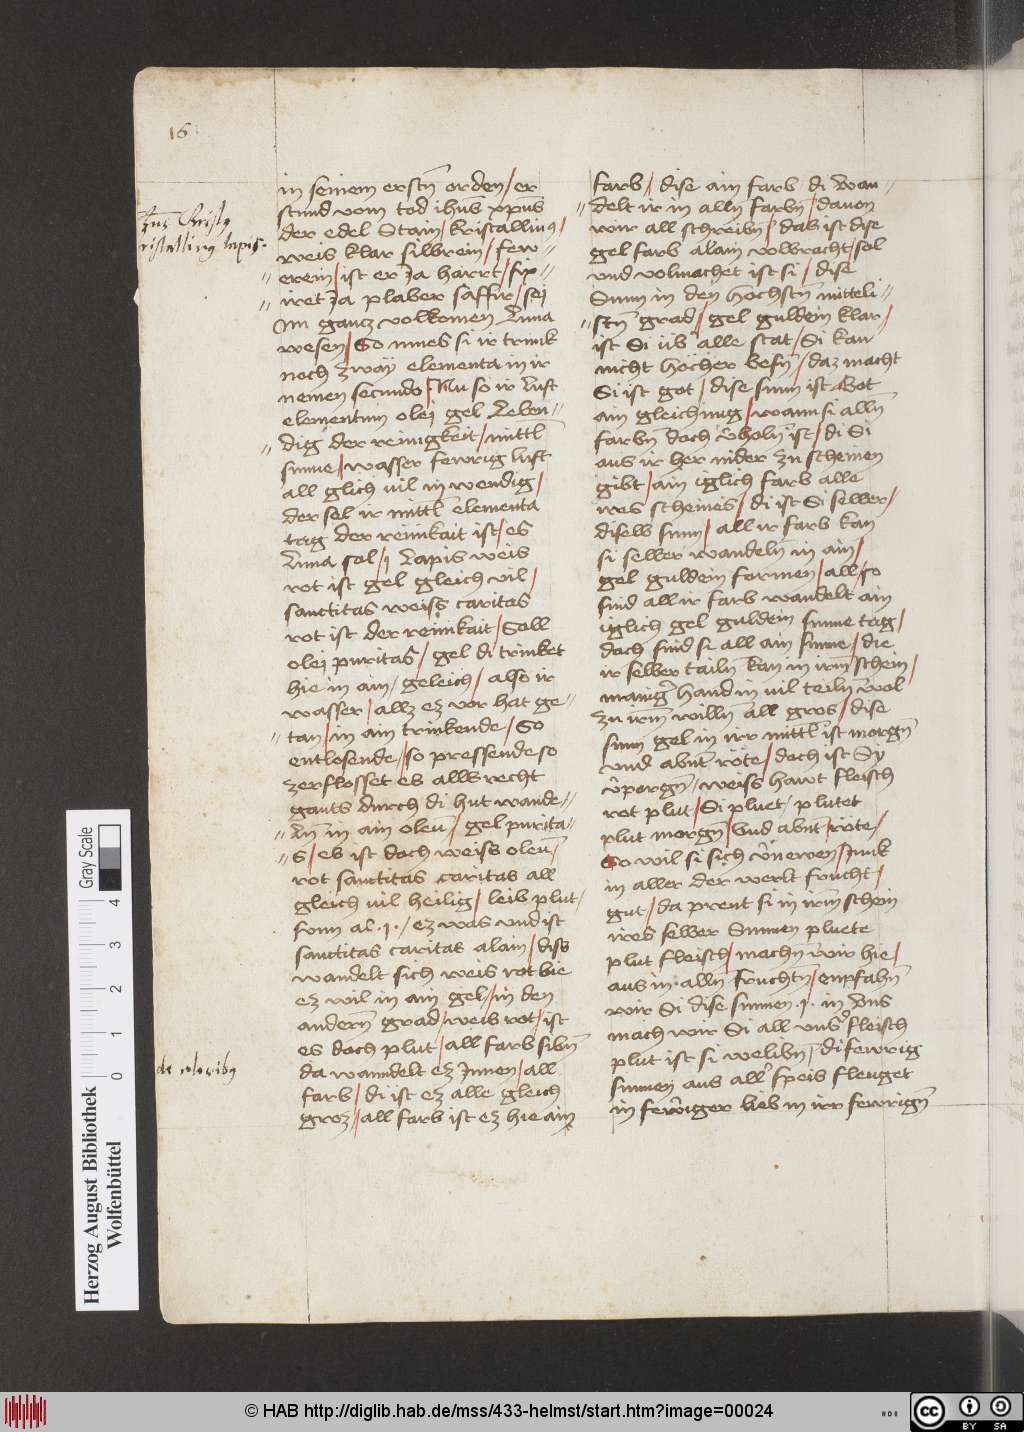 16
in seinem erstn̄ orden / er
stund vom tod ihūs xp̄us
der edel Stain / kristallinꝰ /
weis klar silbrein / few=
erein / ist er Ja harrt / fix=
iret Ja plaber saffir / sei
Im gancz volkomen Luna
wesen / So mues si ir trink
noch zwäÿ elementa in ir
nemen secundo / Nu so ir luft
elementum olej gel Leben=
dig der reinigkeit / mittl̄
sunne / wasser fewrig luft
all glich vil inwendig /
der sel ir mittl̄ elementa
tag der reinikait ist / es
Luna sol / Lapis weis
rot ist gel gleich vil /
sanctitas weiss caritas
rot ist der reinikait / Soll
olej puritas / gel di trinket
hie in ain / geleich / also ir
wasser / allz ez vor hat ge=
tan / in ain trinkende / So
entlosende / so pressende so
zerflosset es alls recht
gants durch di hut wande=
ln̄ in ain oleū / gel purita=
s / es ist doch weiss oleū /
rot sanctitas caritas all
gleich vil heilig / leib plut /
sunn al .j. / ez was vnd ist
sanctitas caritas alain / diss
wandelt sich weis rot bie
ez wil in ain gel / in den
andern̄ grad / weis rot / ist
es doch plut / all farb sibn̄
da wanndelt ez Jnnen / all
farb / di ist ez alle gleich
groz / all farb ist ez hie ain
farb / dise ain farb di wan=
delt ir in alln̄ farbn̄ / dauon
wir all schreibn̄ / das ist dise
gel farb alain volbracht / sol
vnd volmachet ist si / dise
Sunn in den hochstn̄ mitteli=
stn̄ grad / gel guldein klar /
ist Si üb̄ alle stat / Si kan
nicht höcher besn̄ / daz macht
Si ist got / dise sunn ist Got
ain gleichnug / wann si alln̄
farbn̄ doch v̂boln̄ ist / di Si
aus ir her nider zu scheinen
gibt / ain iglich farb alle
ires scheines / di ist Si selber /
diselb sunn / all ir farb kan
si selber wandeln̄ in ain /
gel guldein formen / all / so
sind all ir farb wandelt ain
iglich gel guldein sunne tag /
doch sind si all ain sunne / die
ir selber tailn̄ kan in irm̄ schein /
manig̛ hand in vil teiln̄ wol
zu irm̄ willn̄ all gros / dise
sunn gel in irr mittl̄ ist morgn̄
vnd abnt̄ röte / doch ist Sy
v̂porgn̄ / weiss hawt fleisch
rot plut / Si pluet / plutet
plut morgn̄ / vnd abnt̄ röte /
So wil si sich v̂newen / Junk
in aller der werlt frucht /
gut / da prent si in irm̄ schein
ires selber Sunnen pluete
plut fleisch / machn̄ wir hie /
aus in alln̄ fruchtn̄ / enpfahn̄
wir Si dise sunnen .j. in vns
mach wir Si all vns̛ fleisch
plut ist si welibn̄ / di fewrig
sunnen aus all̛ speis fleuget
in fewriger lieb in irr fewrign̄
de coloribꝰ
Gray Scale
0 1 2 3 4
Herzog August Bibliothek
Wolfenbüttel
© HAB http://diglib.hab.de/mss/433-helmst/start.htm?image=00024
cc BY SA